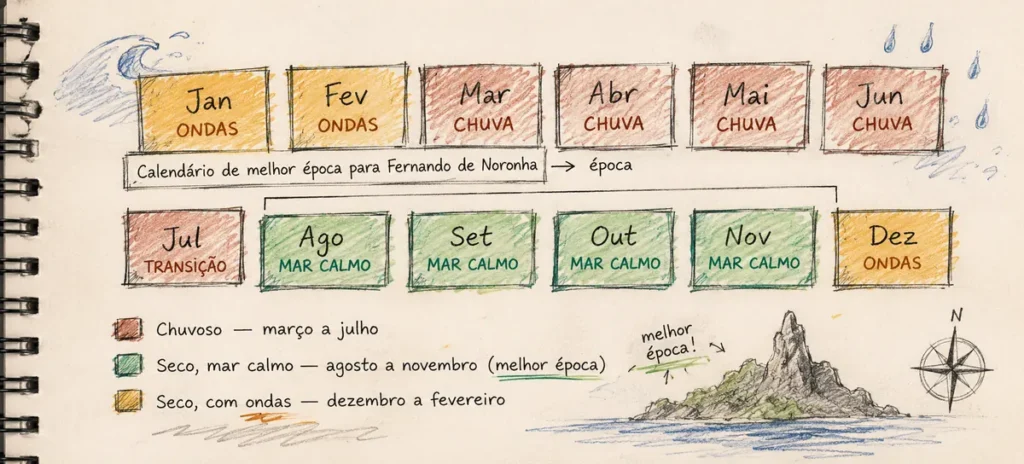 Jan Fev Mar Abr Mai Jun
ONDAS ONDAS CHUVA CHUVA CHUVA CHUVA
Calendário de melhor época para Fernando de Noronha → época
Jul Ago Set Out Nov Dez
TRANSIÇÃO MAR CALMO MAR CALMO MAR CALMO MAR CALMO ONDAS
Chuvoso — março a julho
Seco, mar calmo — agosto a novembro (melhor época)
Seco, com ondas — dezembro a fevereiro
melhor
época!
N